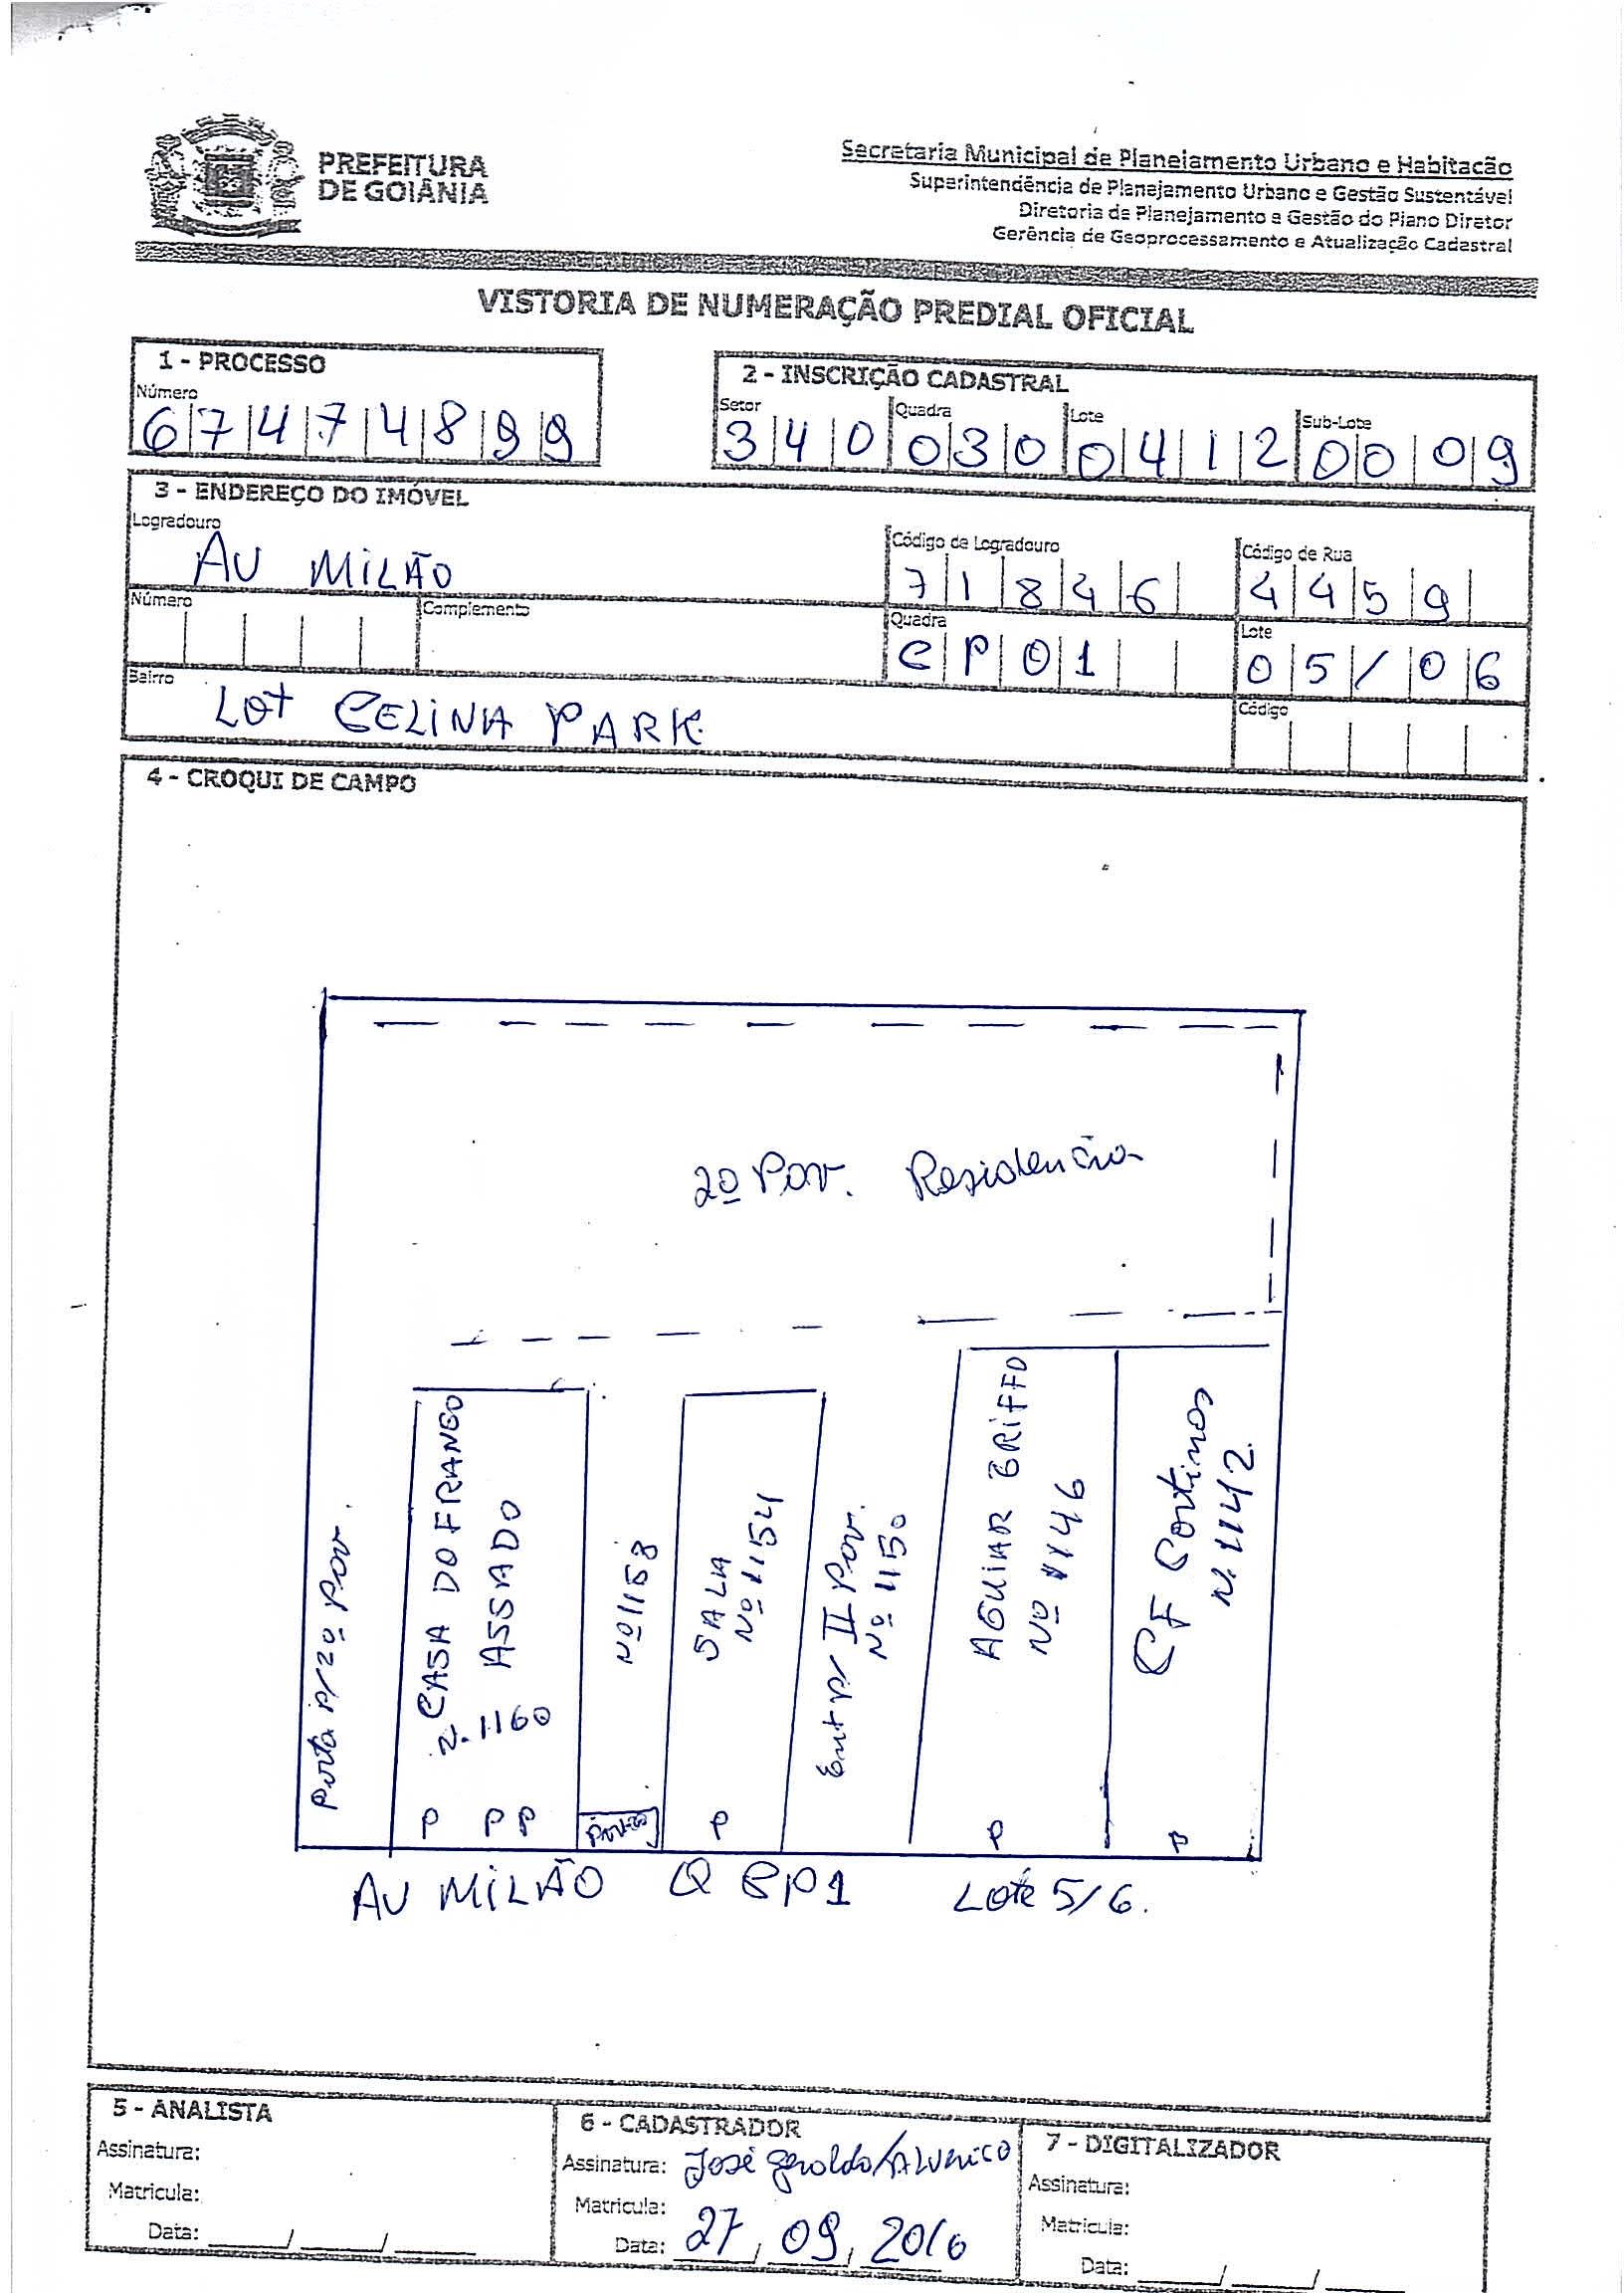 PREFEITURA
DE GOIÂNIA
Secretaria Municipal de Planejamento Urbano e Habitação
Superintendência de Planejamento Urbano e Gestão Sustentável
Diretoria de Planejamento e Gestão do Plano Diretor
Gerência de Geoprocessamento e Atualização Cadastral
VISTORIA DE NUMERAÇÃO PREDIAL OFICIAL
1 - PROCESSO
Número
67474899
2 - INSCRIÇÃO CADASTRAL
Setor Quadra Lote Sub-Lote
340 030 0412 0009
3 - ENDEREÇO DO IMÓVEL
Logradouro Código de Logradouro Código de Rua
AV MILÃO 71846 4459
Número Complemento Quadra Lote
CP01 05/06
Bairro Código
LOT CELINA PARK.
4 - CROQUI DE CAMPO
2º Pav. Residência
Porta p/2º Pav.
CASA DO FRANGO
ASSADO
N. 1160
P P P
Nº 1158
SALA
Nº 1154
P
Entr p/ II Pav.
Nº 1150
AGUIAR GRIFFO
Nº 1146
P
CF Cortinas
N. 1142
P
AV MILÃO Q CP1 Lote 5/6.
5 - ANALISTA
Assinatura:
Matricula:
Data: / /
6 - CADASTRADOR
Assinatura: José Geraldo/
Matricula:
Data: 27/09/2016
7 - DIGITALIZADOR
Assinatura:
Matricula:
Data: / /